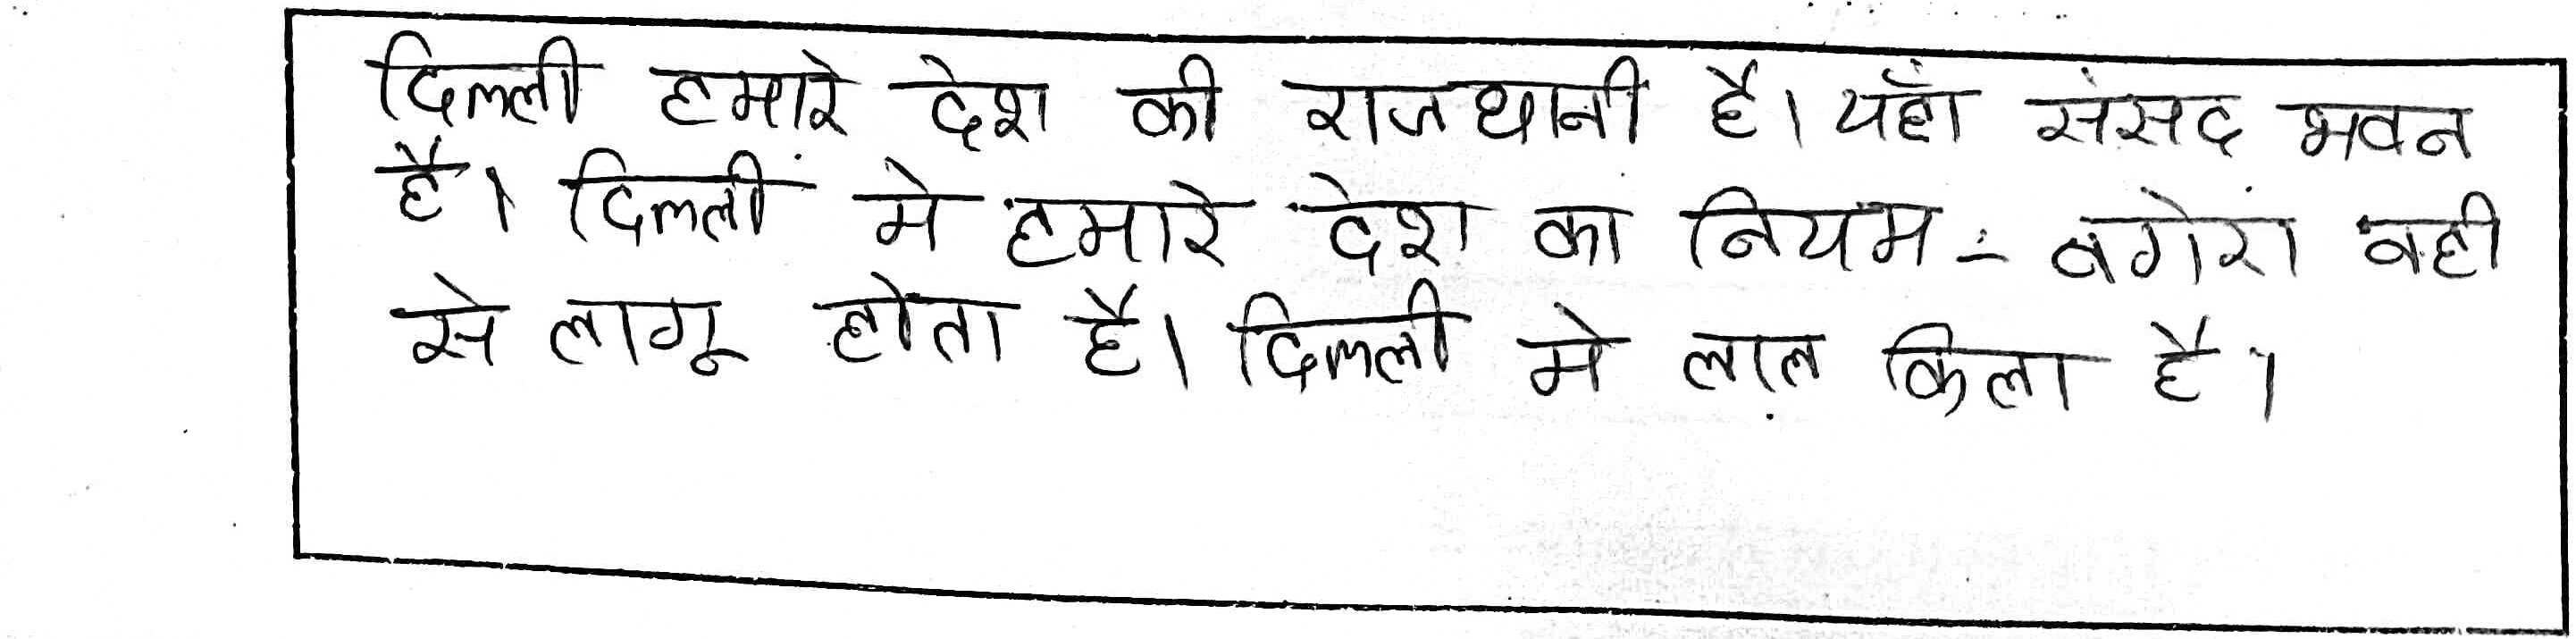 दिल्ली हमारे देश की राजधानी है। यहाँ संसद भवन
है। दिल्ली मे हमारे देश का नियम - वगेरा वही
से लागू होता है। दिल्ली मे लाल किला है।